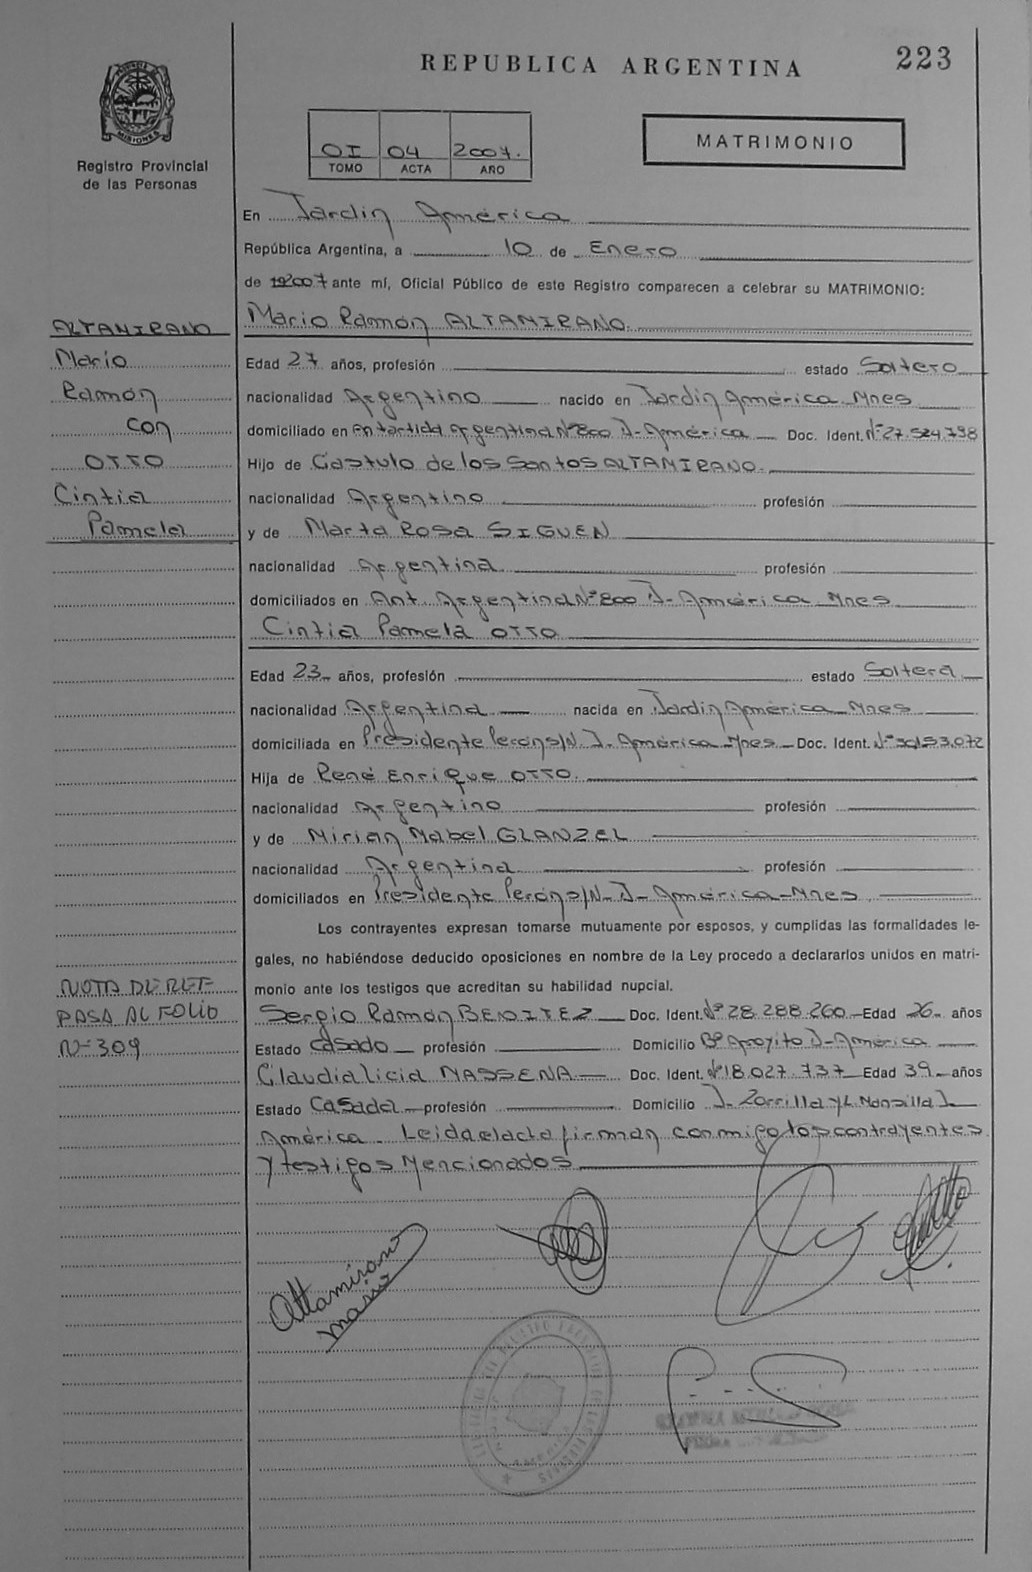 REPUBLICA ARGENTINA
223
PROVINCIA DE MISIONES
Registro Provincial
de las Personas
OI 04 2007.
TOMO ACTA AÑO
MATRIMONIO
En Jardín América
República Argentina, a 10 de Enero
de 192007 ante mí, Oficial Público de este Registro comparecen a celebrar su MATRIMONIO:
Mario Ramón ALTAMIRANO.
ALTAMIRANO
Mario
Ramón
con
OTTO
Cintia
Pamela
Edad 27 años, profesión estado Soltero
nacionalidad Argentino nacido en Jardín América Mnes
domiciliado en Antartida Argentina Nº 800 J- América Doc. Ident. Nº 27.524.798
Hijo de Castulo de los Santos ALTAMIRANO.
nacionalidad Argentino profesión
y de Marta Rosa SIGUEN
nacionalidad Argentina profesión
domiciliados en Ant. Argentina Nº 800 J- América Mnes
Cintia Pamela OTTO
Edad 23 años, profesión estado Soltera
nacionalidad Argentina nacida en Jardín América Mnes
domiciliada en Presidente Perón s/N. J. América Mnes Doc. Ident. Nº 30.153.072
Hija de René Enrique OTTO.
nacionalidad Argentino profesión
y de Mirian Mabel GLANZEL
nacionalidad Argentina profesión
domiciliados en Presidente Perón s/N- J- América-Mnes.
Los contrayentes expresan tomarse mutuamente por esposos, y cumplidas las formalidades le-
gales, no habiéndose deducido oposiciones en nombre de la Ley procedo a declararlos unidos en matri-
monio ante los testigos que acreditan su habilidad nupcial.
NOTA DE REF
PASA AL FOLIO
Nº 309
Sergio Ramón BENITEZ Doc. Ident. Nº 28.288.260 Edad 26 años
Estado Casado profesión Domicilio Bº Arroyito J-América
Claudia licia MASSENA Doc. Ident. Nº 18.027.737 Edad 39 años
Estado Casada profesión Domicilio J- Zorrilla y L Mansilla J-
América - Leida el acta firman conmigo los contrayentes
y testigos Mencionados
Altamirano
Mario